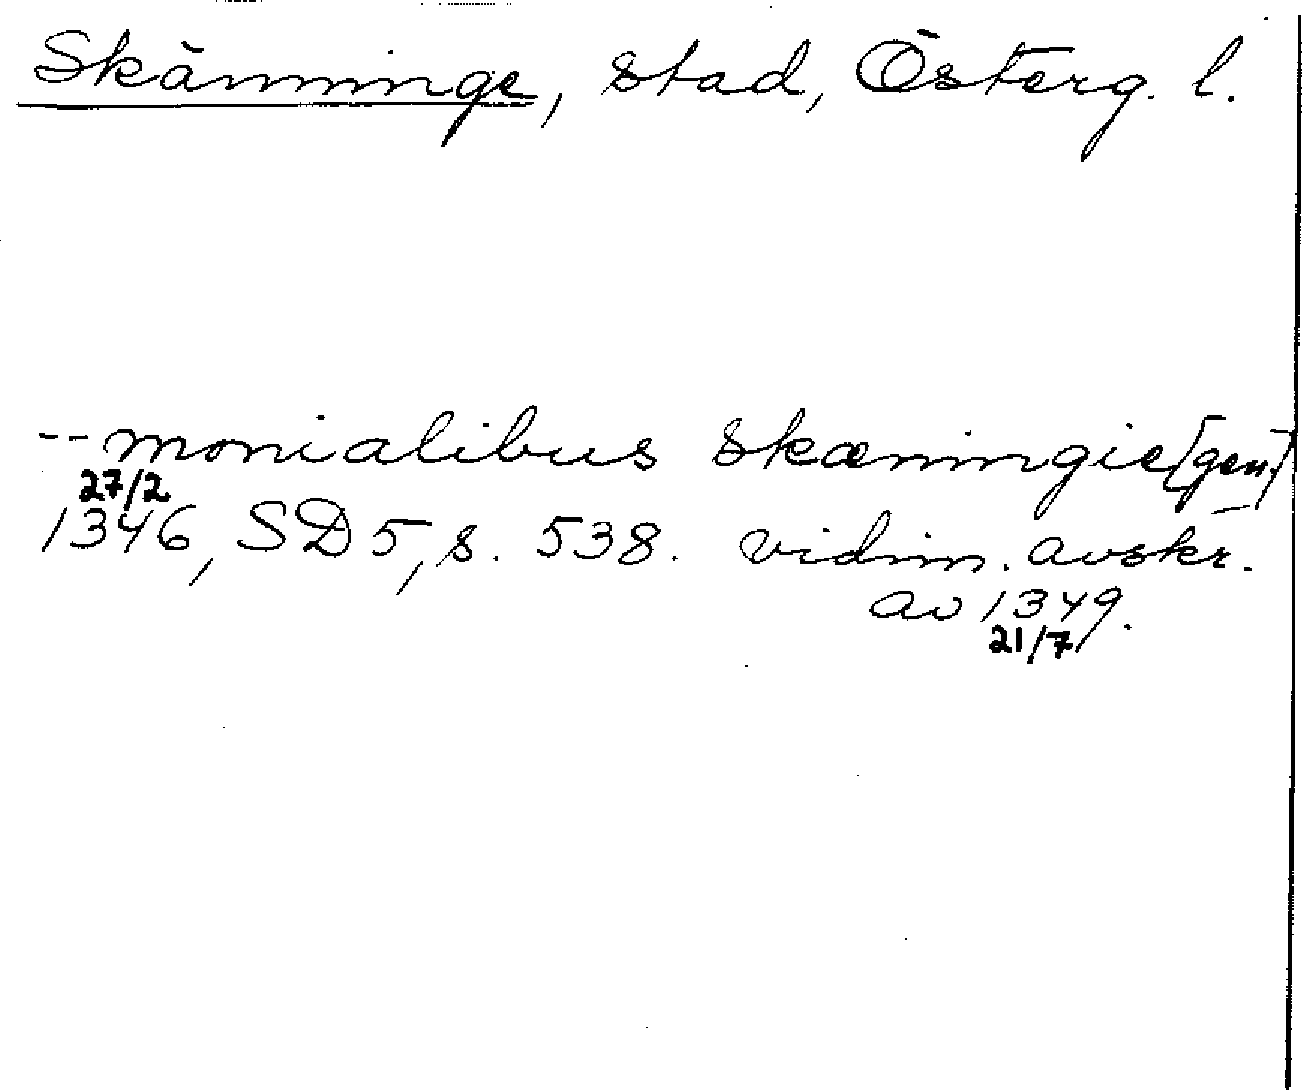 Skänninge, stad, Österg. l.
-- monialibus skæningie [gen.]
27/2
1346, SD 5, s. 538. vidim. avskr.
av 1349.
21/7